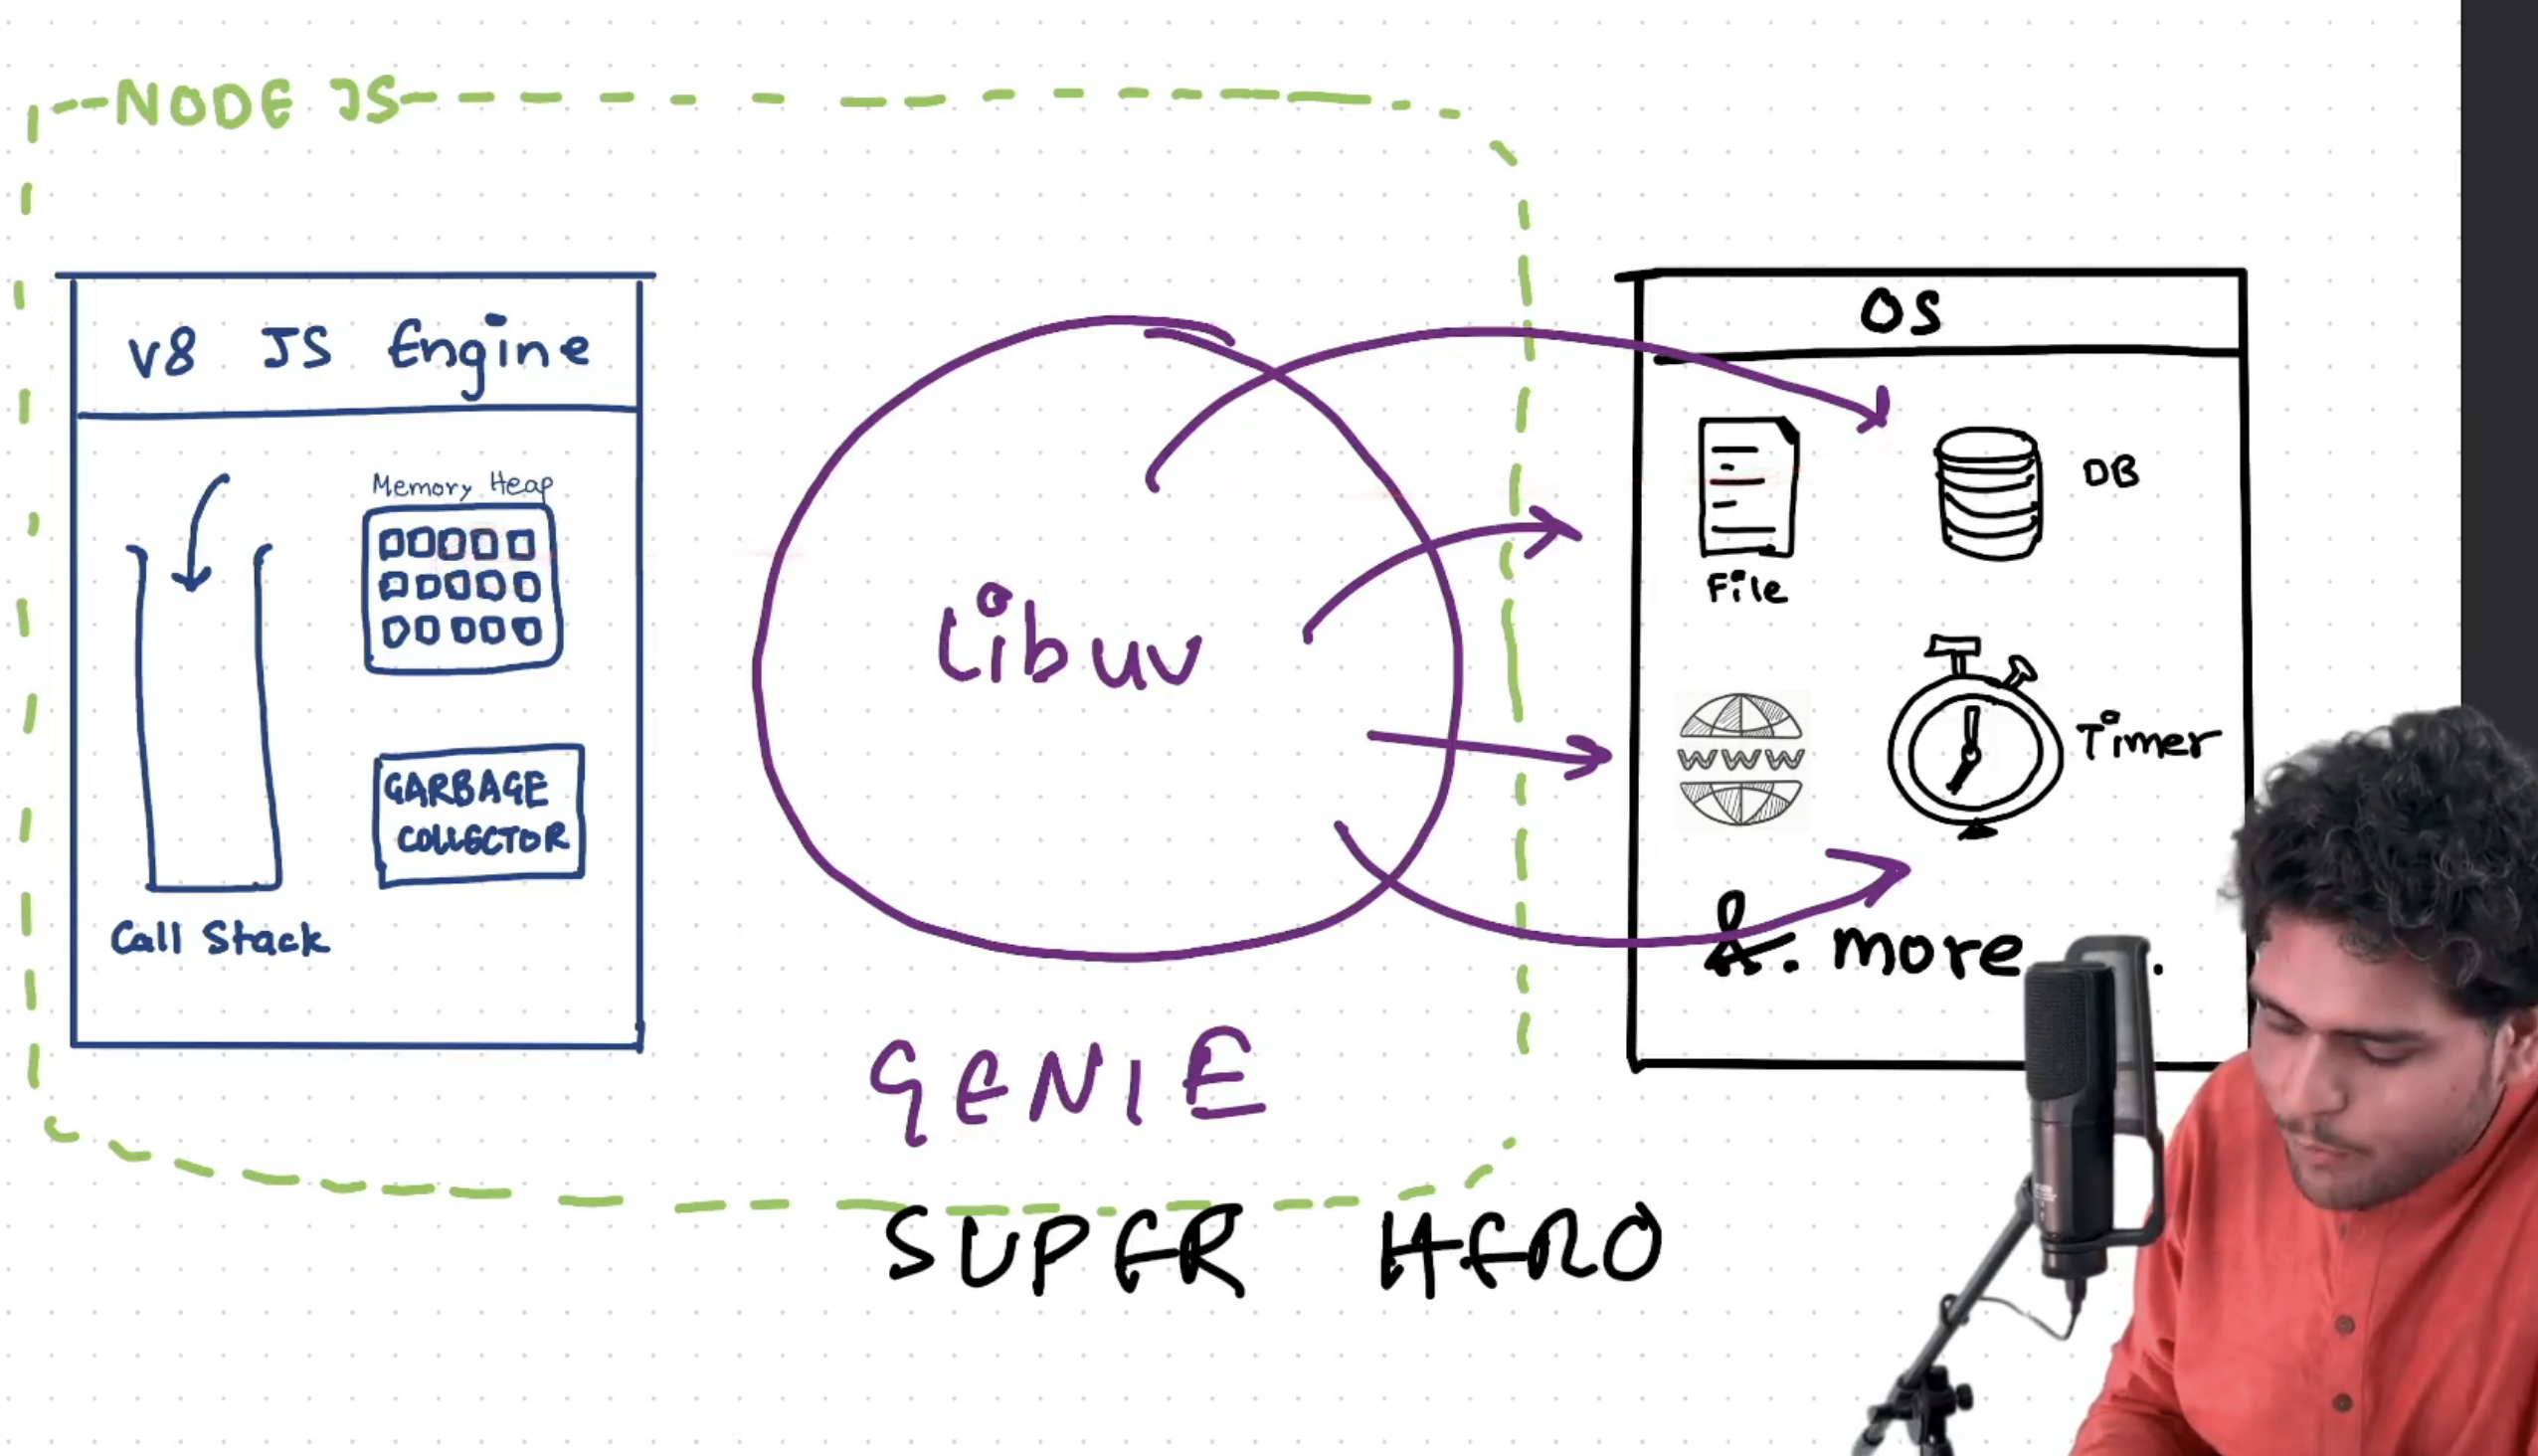 NODE JS
V8 JS Engine
Memory Heap
GARBAGE
COLLECTOR
Call Stack
Libuv
GENIE
SUPER HERO
OS
File
DB
WWW
Timer
&. more .